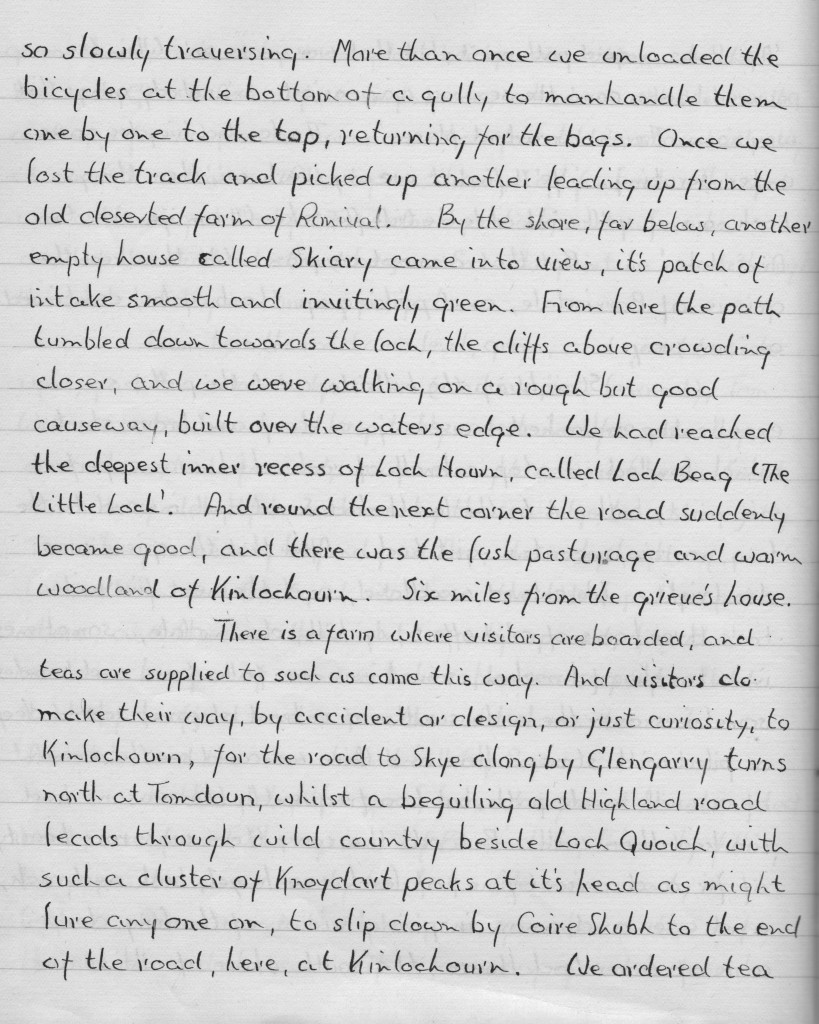 so slowly traversing. More than once we unloaded the
bicycles at the bottom of a gully, to manhandle them
one by one to the top, returning for the bags. Once we
lost the track and picked up another leading up from the
old deserted farm of Runival. By the shore, far below, another
empty house called Skiary came into view, it's patch of
intake smooth and invitingly green. From here the path
tumbled down towards the loch, the cliffs above crowding
closer, and we were walking on a rough but good
causeway, built over the waters edge. We had reached
the deepest inner recess of Loch Hourn, called Loch Beag 'The
Little Loch'. And round the next corner the road suddenly
became good, and there was the lush pasturage and warm
woodland of Kinlochourn. Six miles from the grieve's house.
There is a farm where visitors are boarded, and
teas are supplied to such as come this way. And visitors do
make their way, by accident or design, or just curiosity, to
Kinlochourn, for the road to Skye along by Glengarry turns
north at Tomdoun, whilst a beguiling old Highland road
leads through wild country beside Loch Quoich, with
such a cluster of Knoydart peaks at it's head as might
lure anyone on, to slip down by Coire Shubh to the end
of the road, here, at Kinlochourn. We ordered tea